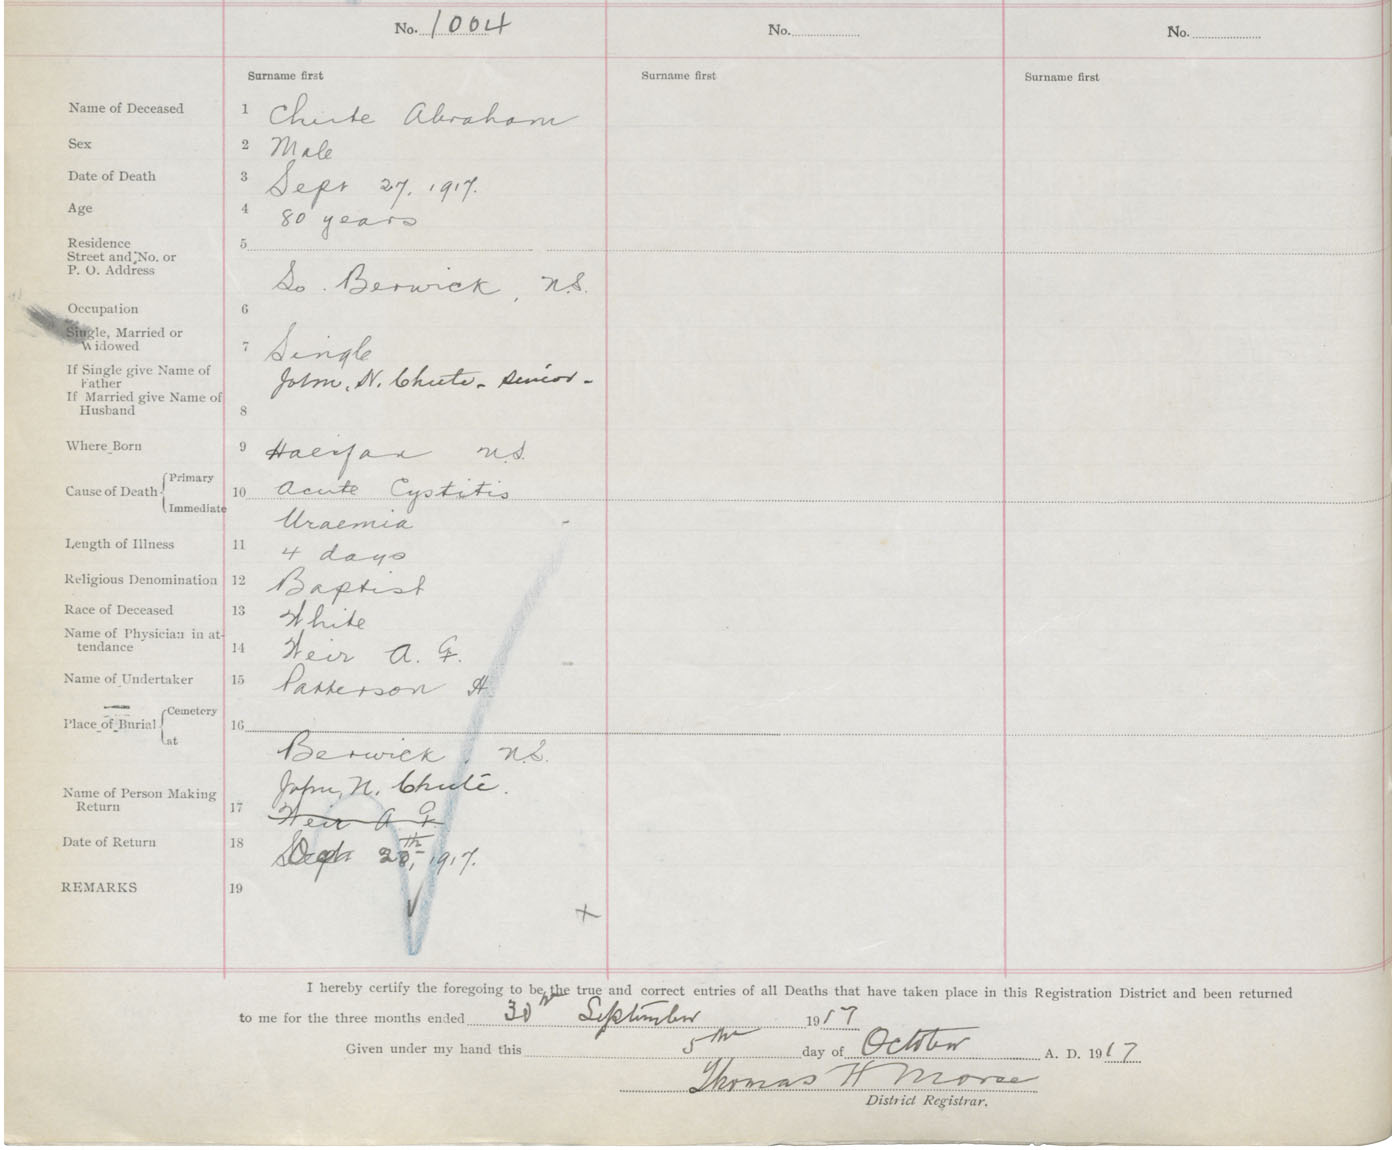 No. 1004 No. No.
Surname first Surname first Surname first
Name of Deceased 1 Chute Abraham
Sex 2 Male
Date of Death 3 Sept 27, 1917.
Age 4 80 years
Residence 5
Street and No. or
P. O. Address So. Berwick, N.S.
Occupation 6
Single, Married or
Widowed 7 Single
If Single give Name of
Father John, N. Chute - senior -
If Married give Name of
Husband 8
Where Born 9 Halifax N.S.
Cause of Death Primary 10 Acute Cystitis
Immediate Uraemia
Length of Illness 11 4 days
Religious Denomination 12 Baptist
Race of Deceased 13 White
Name of Physician in at-
tendance 14 Weir A. F.
Name of Undertaker 15 Patterson H
Place of Burial Cemetery 16
at Berwick, N.S.
John, N. Chute.
Name of Person Making
Return 17 Weir A F
Date of Return 18 1917.
REMARKS 19
I hereby certify the foregoing to be the true and correct entries of all Deaths that have taken place in this Registration District and been returned
to me for the three months ended 30th September 1917
Given under my hand this 5th day of October A. D. 1917
Thomas H Morse
District Registrar.